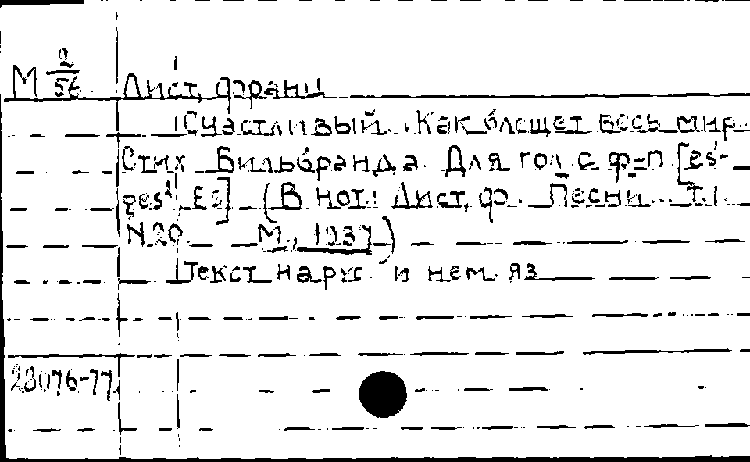 М 2/56 Лист, Франц
Счастливый. Как блещет весь мир.
Стих Вильбранда. Для гол. с ф-п. [es-
ges², Es] (В нот.: Лист, Ф. Песни. Т.1.
N 20 М., 1937)
Текст на рус. и нем. яз
23076-77